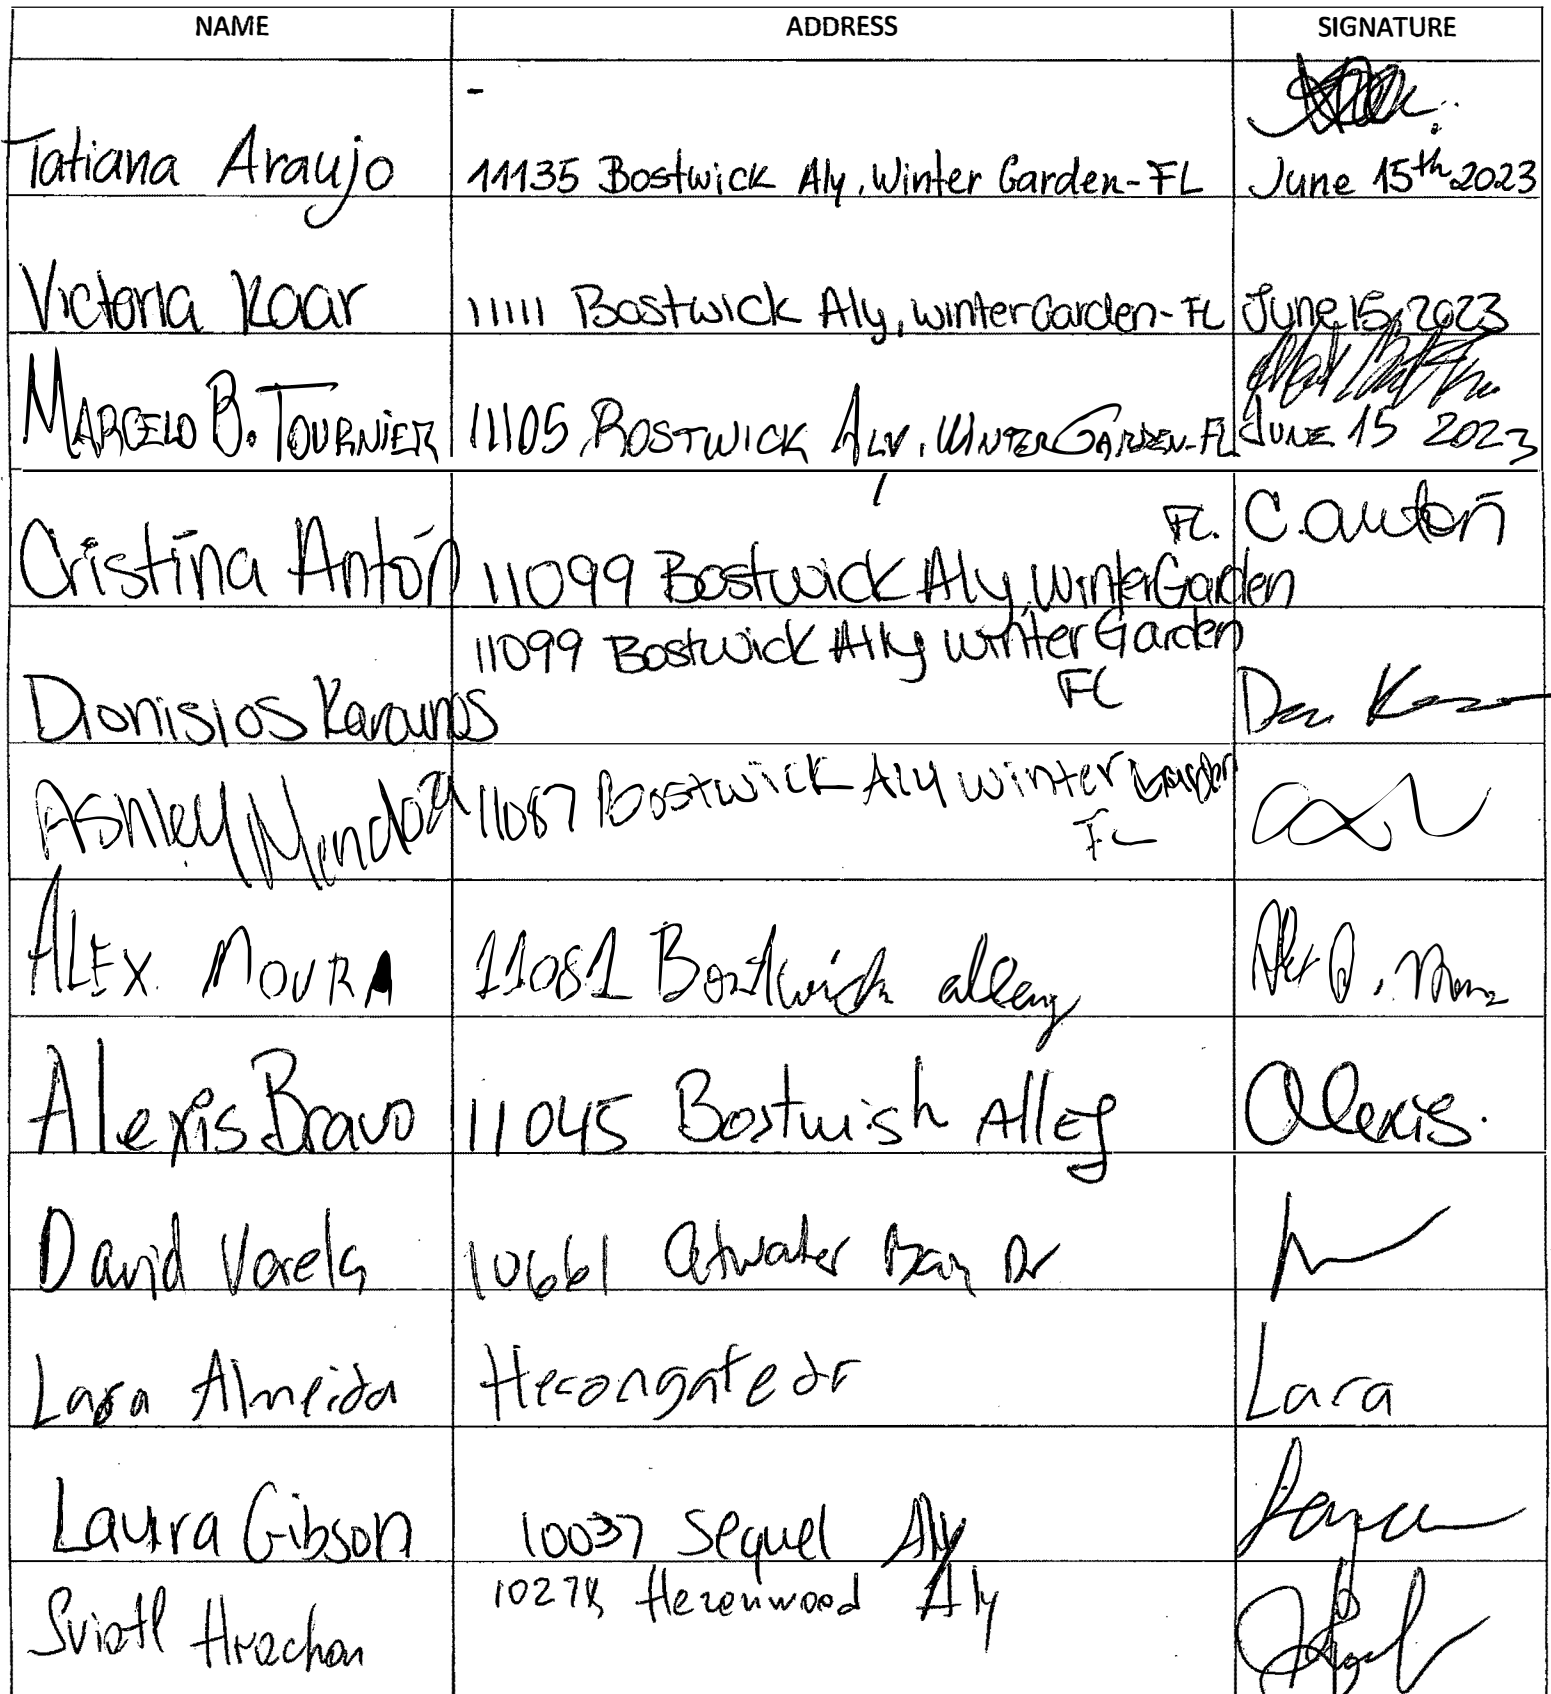 NAME ADDRESS SIGNATURE
-
Tatiana Araujo 11135 Bostwick Aly, Winter Garden-FL June 15th 2023
Victoria Kaar 11111 Bostwick Aly, Winter Garden-FL June 15, 2023
MARCELO B. TOURNIER 11105 BOSTWICK ALY, WINTER GARDEN-FL JUNE 15 2023
FL. C. Antón
Cristina Antón 11099 Bostwick Aly, Winter Garden
11099 Bostwick Ally Winter Garden
FL
Dionisios
Ashley Mendoza 11087 Bostwick Aly Winter Garden
FL
ALEX. MOURA 11081 Bostwick alley
Alexis Bravo 11045 Bostwish Alley Alexis.
David 10661 Atwater Bay Dr
Lara Almeida Herongate dr Lara
Laura Gibson 10037 Sequel Aly
Hezenwood Aly
Hrachon